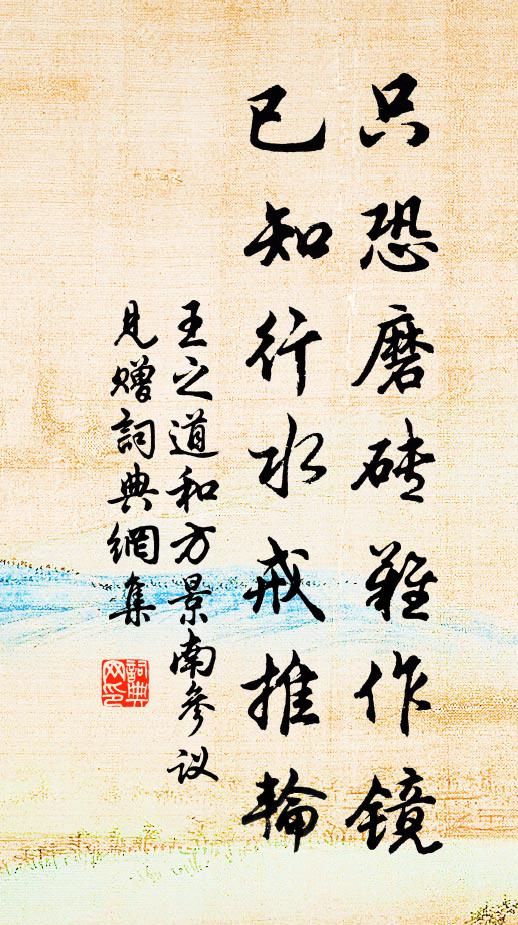 只恐磨砖难作镜
已知行水戒推轮
王之道和方景南参议
见赠词典網集
詞典网印